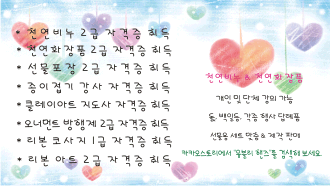 * 천연비누 2급 자격증 취득
* 천연화장품 2급 자격증 취득
* 선물포장 2급 자격증 취득
* 종이접기 강사 자격증 취득
* 클레이아트 지도사 자격증 취득
* 오너먼트 방향제 2급 자격증 취득
* 리본 코사지 1급 자격증 취득
* 리본 아트 2급 자격증 취득
천연비누 & 천연화장품
개인 및 단체 강의 가능
돌, 백일등, 각종 행사 답례품
선물용 세트 맞춤 & 제작 판매
카카오스토리에서 핸즈를 검색해 보세요.